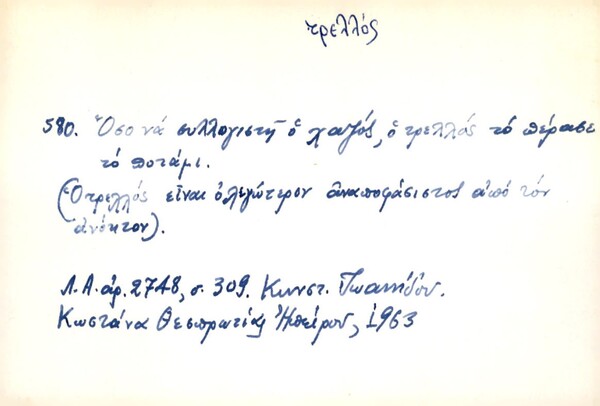 τρελλός
580. Ὅσο νά συλλογιστῆ ὁ χαζός, ὁ τρελλός τό πέρασε
τό ποτάμι.
(Ὁ τρελλός εἶναι ὀλιγώτερον ἀναποφάσιστος ἀπό τόν
ἀνόητον).
Λ.Α. ἀρ. 2748, σ. 309. Κωνστ. Ἰωαννίδου.
Κωστάνα Θεσπρωτίας Ἠπείρου, 1963